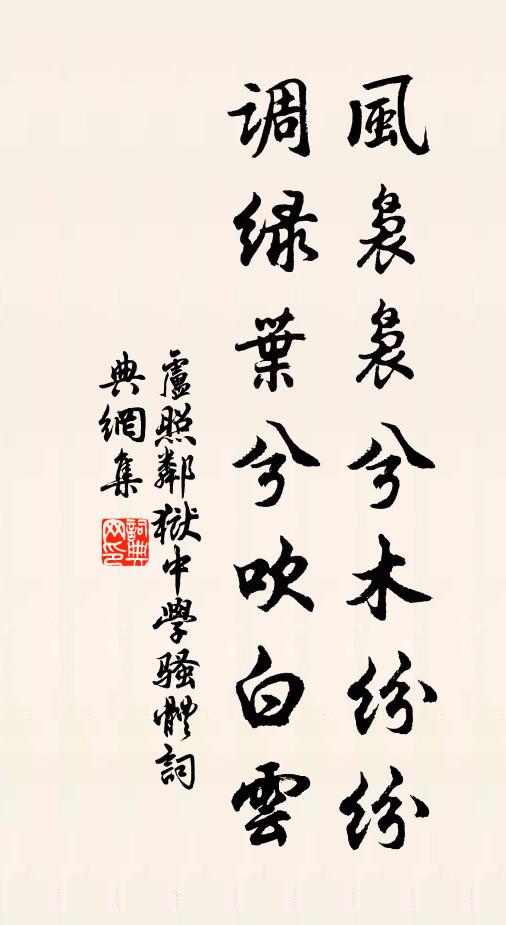 風裊裊兮木紛紛
調綠葉兮吹白雲
盧照鄰獄中學騷體詞
典網集
詞典網印